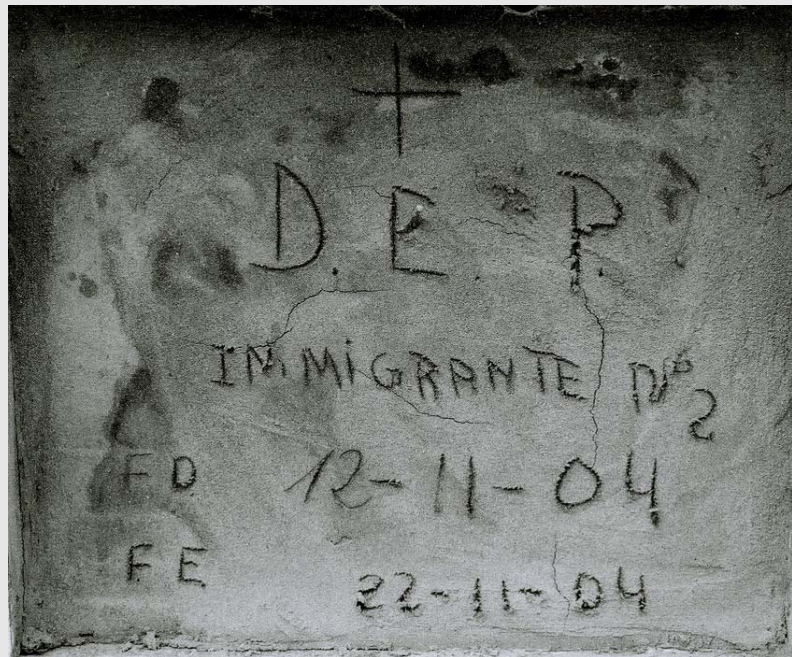 D. E. P.
IMMiGRANTE Nº 2
F D. 12-11-04
F. E. 22-11-04